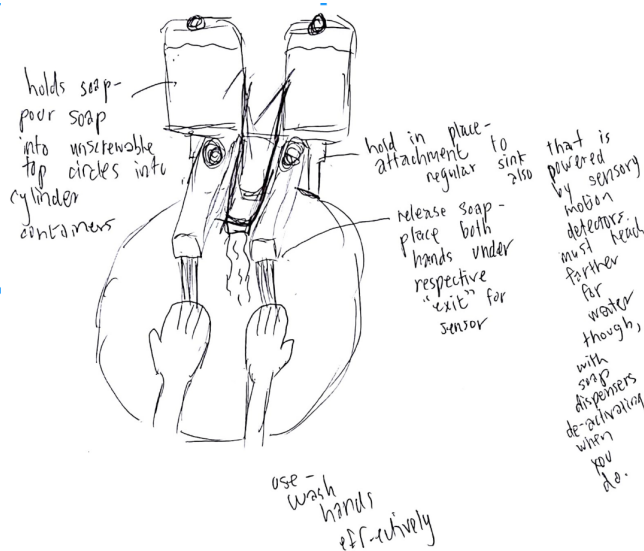 holds soap-
pour soap
into unscrewable
top circles into
cylinder
containers
hold in place-
attachment to
regular sink
also
that is
powered
by sensory
motion
detectors.
must reach
farther
for
water
though,
with
soap
dispensers
de-activating
when
you
do.
release soap-
place both
hands under
respective
"exit" for
sensor
use-
wash
hands
effectively